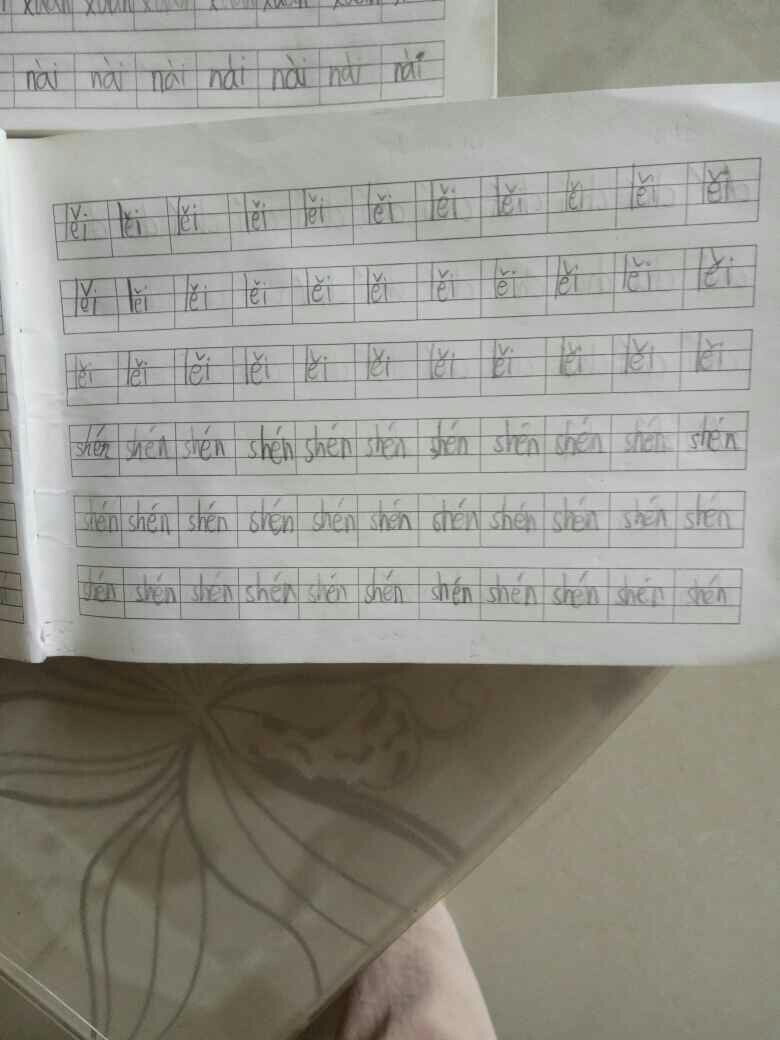 nài nài nài nài nài nài nài
lěi lěi lěi lěi lěi lěi lěi lěi lěi lěi lěi
lěi lěi lěi lěi lěi lěi lěi lěi lěi lěi lěi
lěi lěi lěi lěi lěi lěi lěi lěi lěi lěi lěi
shén shén shén shén shén shén shén shén shén shén shén
shén shén shén shén shén shén shén shén shén shén shén
shén shén shén shén shén shén shén shén shén shén shén